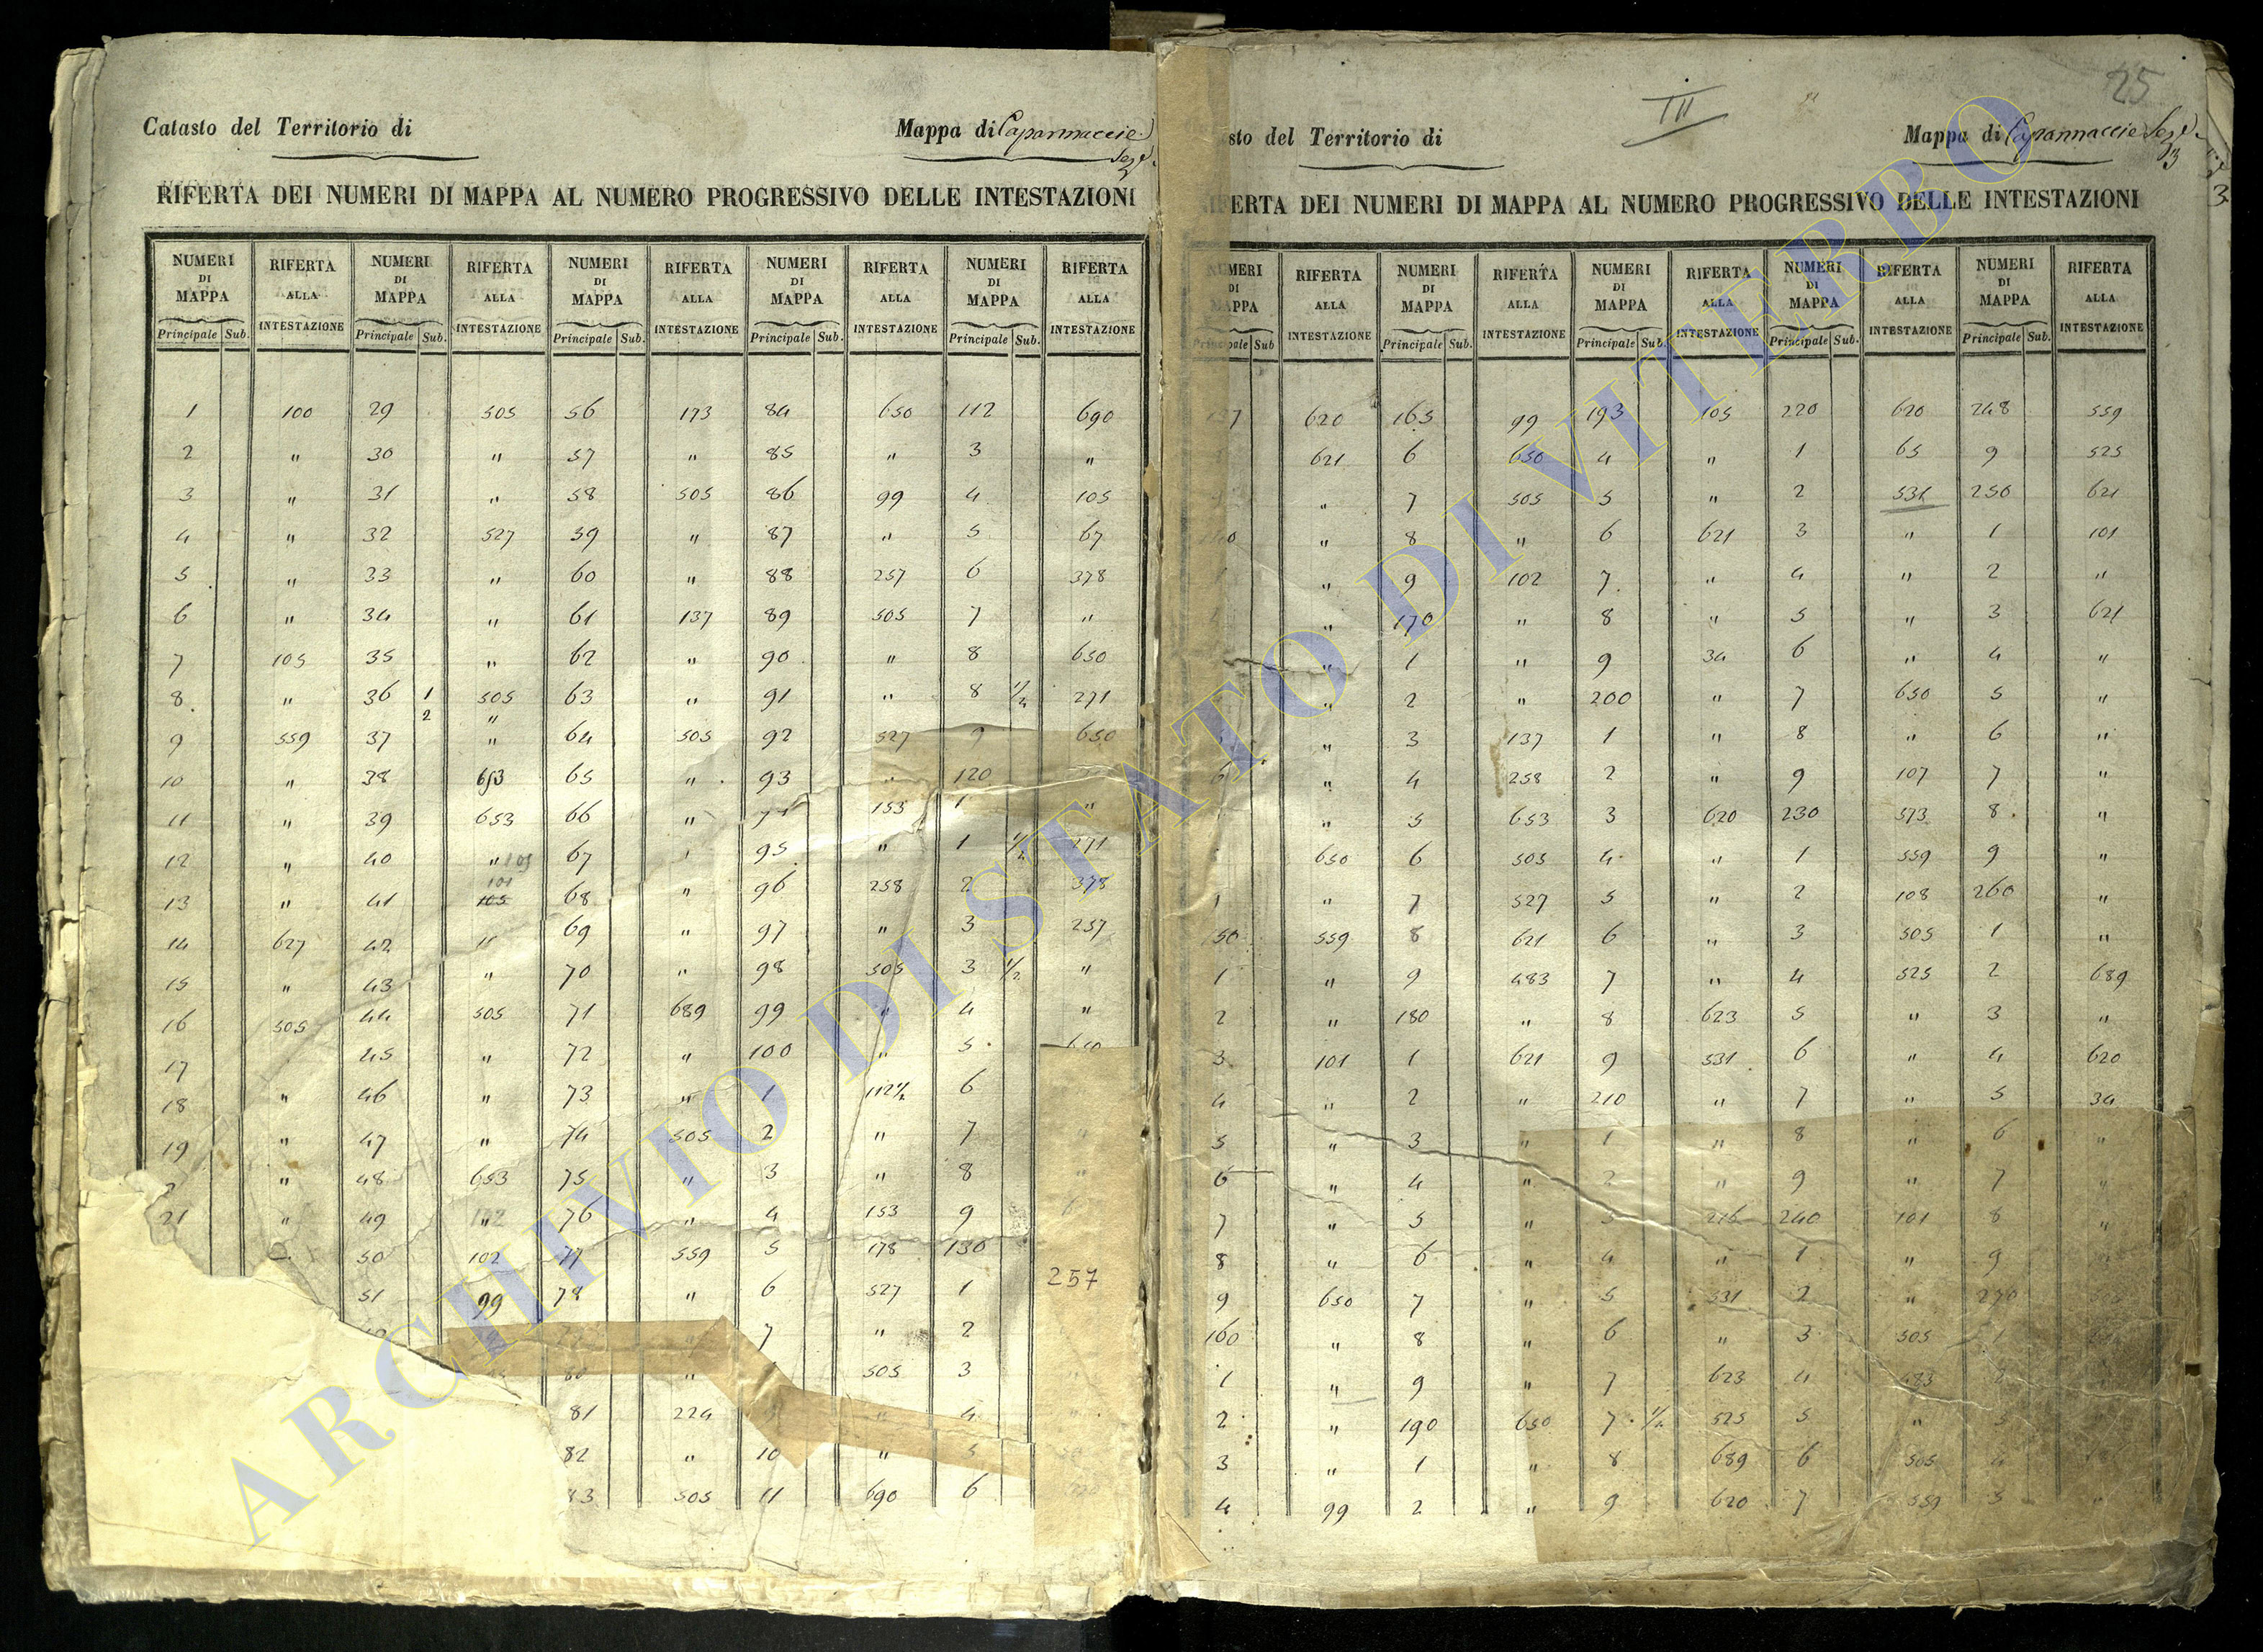 25
III
Catasto del Territorio di
Mappa di Capannaccie
Sez.e
3
RIFERTA DEI NUMERI DI MAPPA AL NUMERO PROGRESSIVO DELLE INTESTAZIONI
NUMERI DI MAPPA RIFERTA ALLA INTESTAZIONE NUMERI DI MAPPA RIFERTA ALLA INTESTAZIONE NUMERI DI MAPPA RIFERTA ALLA INTESTAZIONE NUMERI DI MAPPA RIFERTA ALLA INTESTAZIONE NUMERI DI MAPPA RIFERTA ALLA INTESTAZIONE
Principale Sub. Principale Sub. Principale Sub. Principale Sub. Principale Sub.
1 100 29 505 56 173 84 650 112 690
2 " 30 " 57 " 85 " 3 "
3 " 31 " 58 505 86 99 4 105
4 " 32 527 59 " 87 " 5 67
5 " 33 " 60 " 88 257 6 378
6 " 34 " 61 137 89 505 7 "
7 105 35 " 62 " 90 " 8 650
8 " 36 1 505 63 " 91 " 8 1/2 271
2 "
9 559 37 " 64 505 92 527 9 650
10 " 38 653 65 " 93 " 120
11 " 39 653 66 " 153 1 "
12 " 40 " 105 67 95 " 1 1/2 271
13 " 41 101 105 68 " 96 258 2 378
14 627 42 " 69 " 97 " 3 257
15 " 43 " 70 " 98 505 3 1/2 "
16 505 44 505 71 689 99 " 4 "
17 45 " 72 " 100 " 5
18 " 46 " 73 " 1 112 1/2 6
19 " 47 " 74 505 2 " 7
" 48 653 75 " 3 " 8
21 " 49 " 102 76 " 4 153 9
50 102 77 559 5 178 130
51 99 78 " 6 527 1 257
7 " 2
80 " 505 3
81 224 " 4
82 " 10 " 5
83 505 11 690 6
sto del Territorio di
Mappa di Capannaccie Sez.e
3
3
ERTA DEI NUMERI DI MAPPA AL NUMERO PROGRESSIVO DELLE INTESTAZIONI
MERI DI MAPPA RIFERTA ALLA INTESTAZIONE NUMERI DI MAPPA RIFERTA ALLA INTESTAZIONE NUMERI DI MAPPA RIFERTA ALLA INTESTAZIONE NUMERI DI MAPPA RIFERTA ALLA INTESTAZIONE NUMERI DI MAPPA RIFERTA ALLA INTESTAZIONE
Sub Principale Sub. Principale Sub. Principale Sub. Principale Sub.
7 620 165 99 193 105 220 620 248 559
621 6 650 4 " 1 65 9 525
" 7 505 5 " 2 531 250 621
" 8 " 6 621 3 " 1 101
" 9 102 7 " 4 " 2 "
" 170 " 8 " 5 " 3 621
" 1 " 9 34 6 " 4 "
" 2 " 200 " 7 650 5 "
" 3 137 1 " 8 " 6 "
6 " 4 258 2 " 9 107 7 "
" 5 653 3 620 230 573 8 "
650 6 505 4 " 1 559 9 "
1 " 7 527 5 " 2 108 260 "
150 559 8 621 6 " 3 505 1 "
1 " 9 483 7 " 4 525 2 689
2 " 180 " 8 623 5 " 3 "
3 101 1 621 9 531 6 " 4 620
4 " 2 " 210 " 7 " 5 34
5 " 3 " 1 " 8 " 6 "
6 " 4 " 2 " 9 " 7 "
7 " 5 " 3 216 240 101 8 "
8 " 6 " 4 " 1 " 9
9 650 7 " 5 531 2 " 270
160 " 8 " 6 " 3 505 1
1 " 9 " 7 623 4 483
2 " 190 650 7 1/2 525 5 "
3 " 1 " 8 689 6 505
4 99 2 " 9 620 7 559
ARCHIVIO DI STATO DI VITERBO